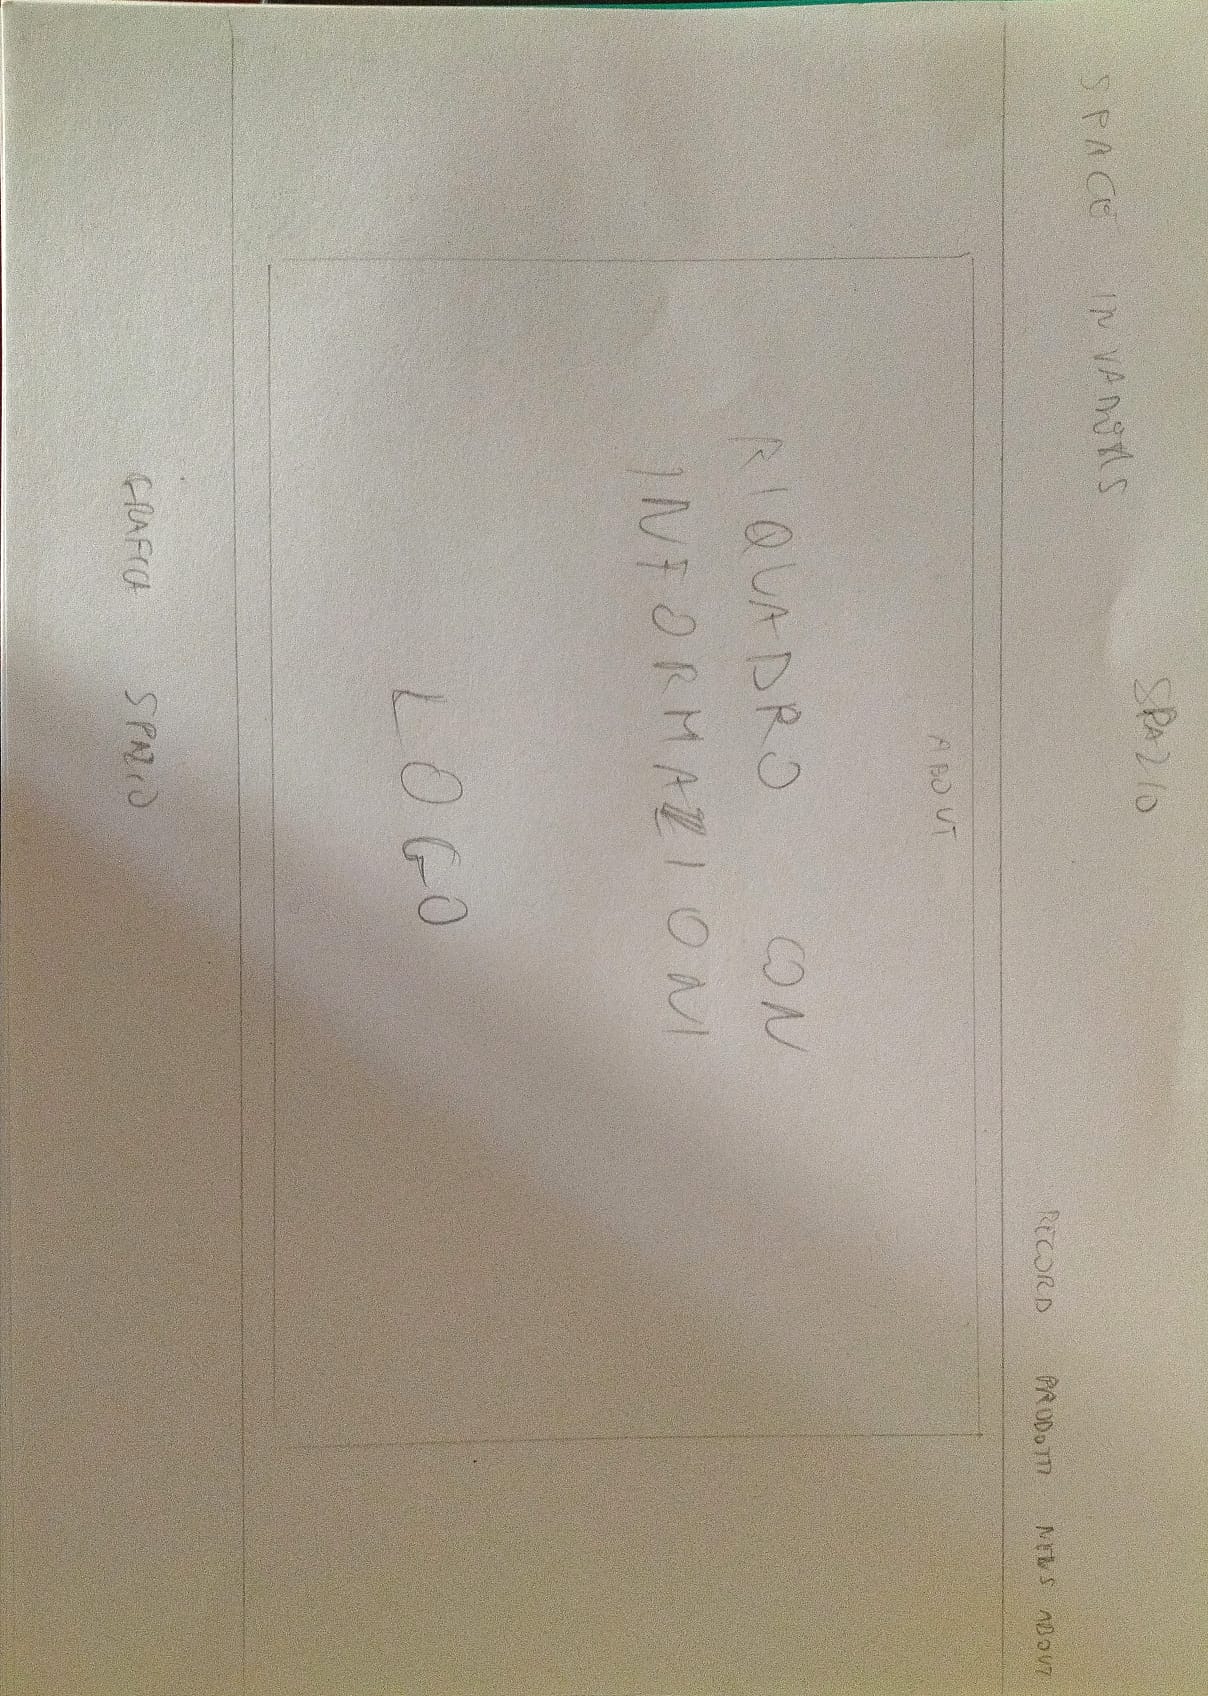 SPAZIO
SPACE INVADERS
RECORD PRODOTTI NEWS ABOUT
ABOUT
RIQUADRO CON
INFORMAZIONI
LOGO
GRAFICA SPAZIO